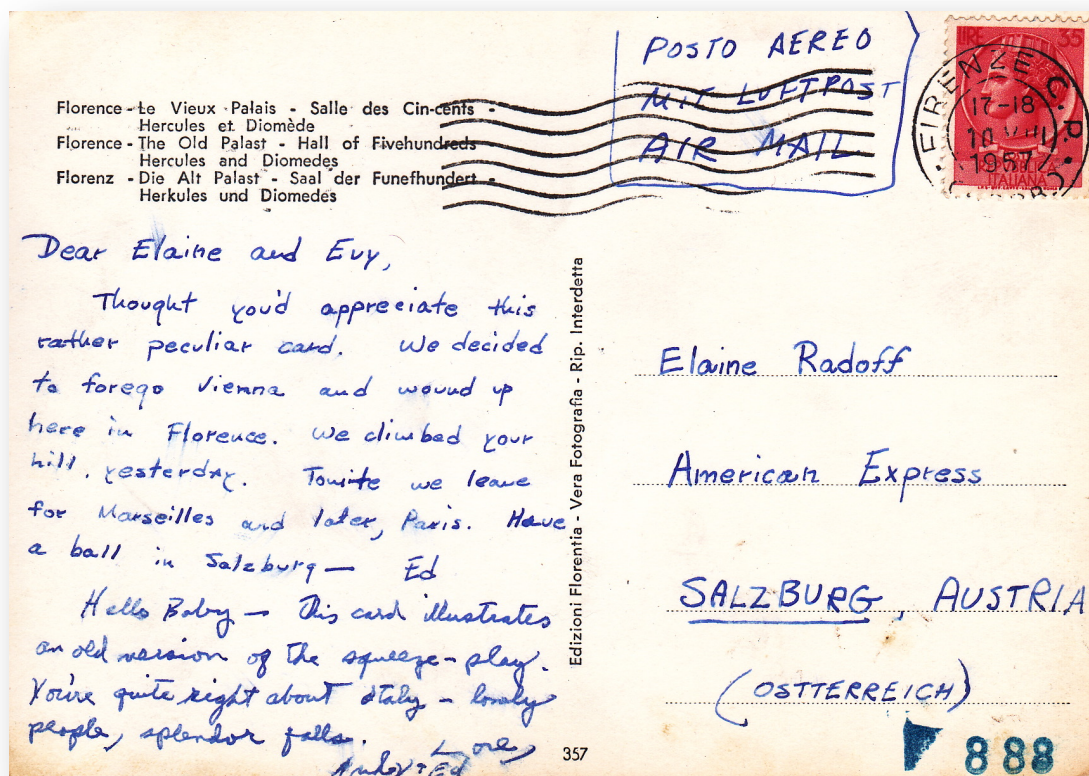 Florence - Le Vieux Palais - Salle des Cin-cents -
Hercules et Diomède
Florence - The Old Palast - Hall of Fivehundreds
Hercules and Diomedes
Florenz - Die Alt Palast - Saal der Funefhundert -
Herkules und Diomedes
POSTO AEREO
MIT LUFTPOST
AIR MAIL
LIRE 35
FIRENZE C.P.
17-18
1957
ITALIANA
Dear Elaine and Evy,
Thought you'd appreciate this
rather peculiar card. We decided
to forego Vienna and wound up
here in Florence. We climbed your
hill, yesterday. Tonite we leave
for Marseilles and later, Paris. Have
a ball in Salzburg — Ed
Hello Baby — This card illustrates
an old version of the squeeze-play.
You're quite right about Italy - lovely
people, splendor falls.
Love,
& Ed
Edizioni Florentia - Vera Fotografia - Rip. Interdetta
357
Elaine Radoff
American Express
SALZBURG, AUSTRIA
(OSTTERREICH)
888